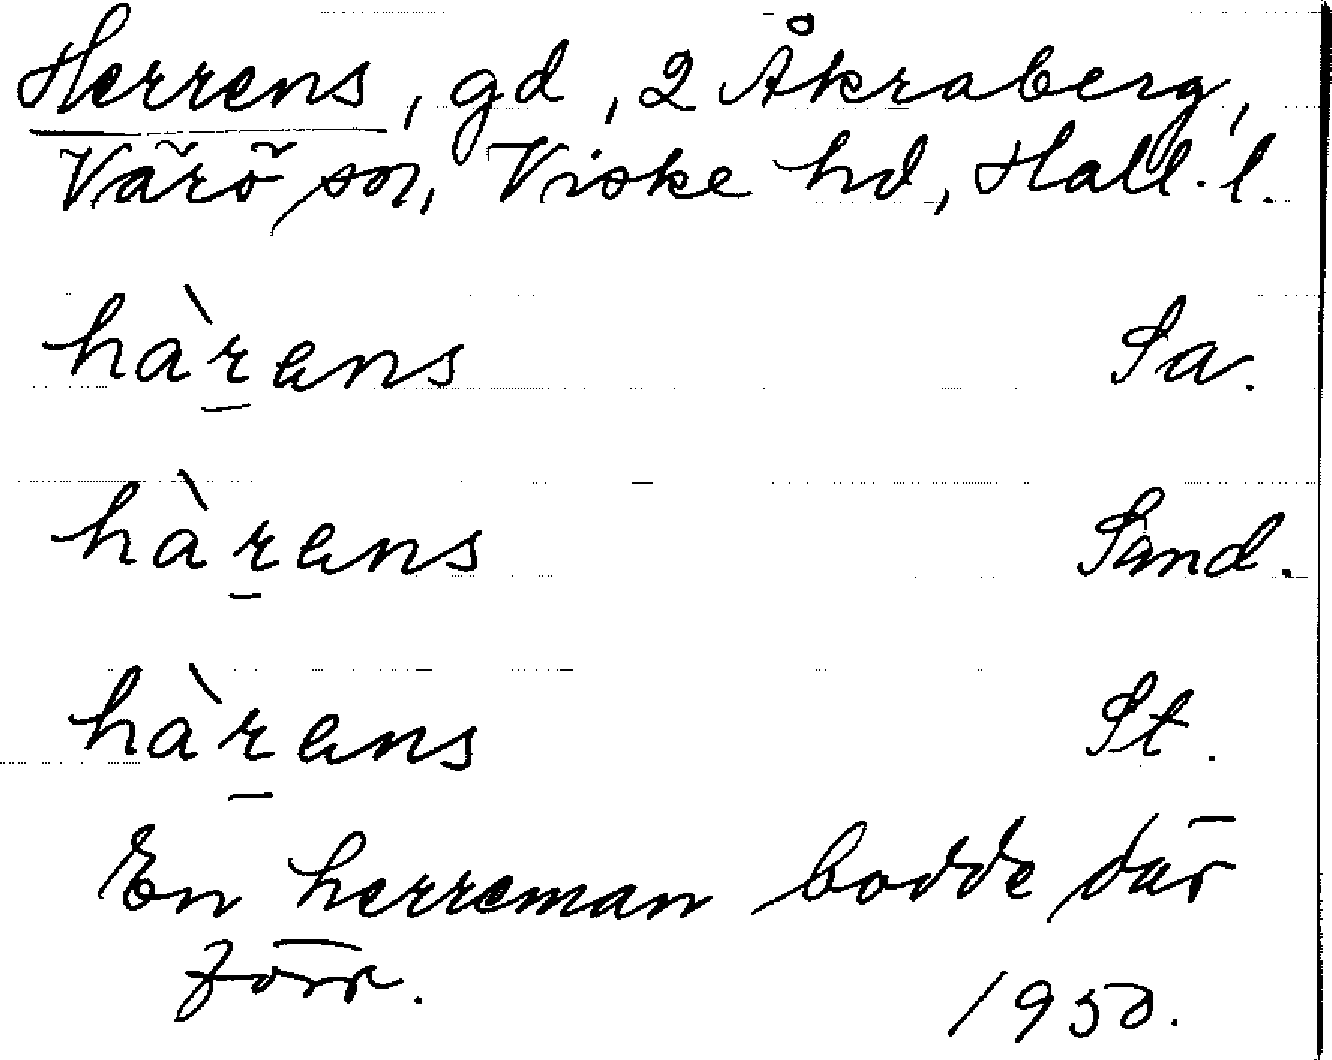 Herrens, gd, 2 Åkraberg,
Värö sn, Viske hd, Hall. l.
hàr̲ens Sa.
hàr̲ens Sand.
hàr̲ens St.
En herreman bodde där
förr.
1950.